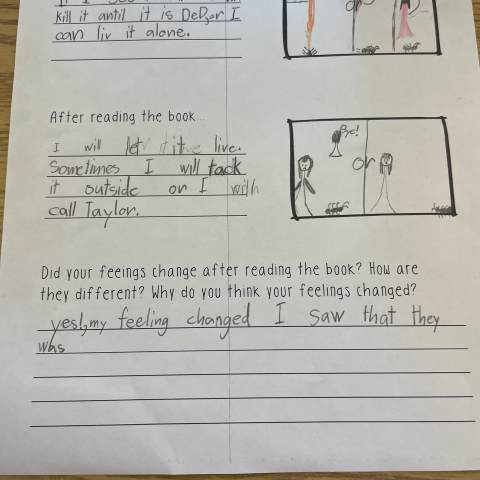 kill it antil it is DeD, or I
can liv it alone.
or
After reading the book
I will let it live.
Sometimes I will tack
it outside or I will
call Taylor.
Bye!
or
Did your feeings change after reading the book? How are
they different? Why do you think your feelings changed?
yes!, my feeling changed I saw that they
was